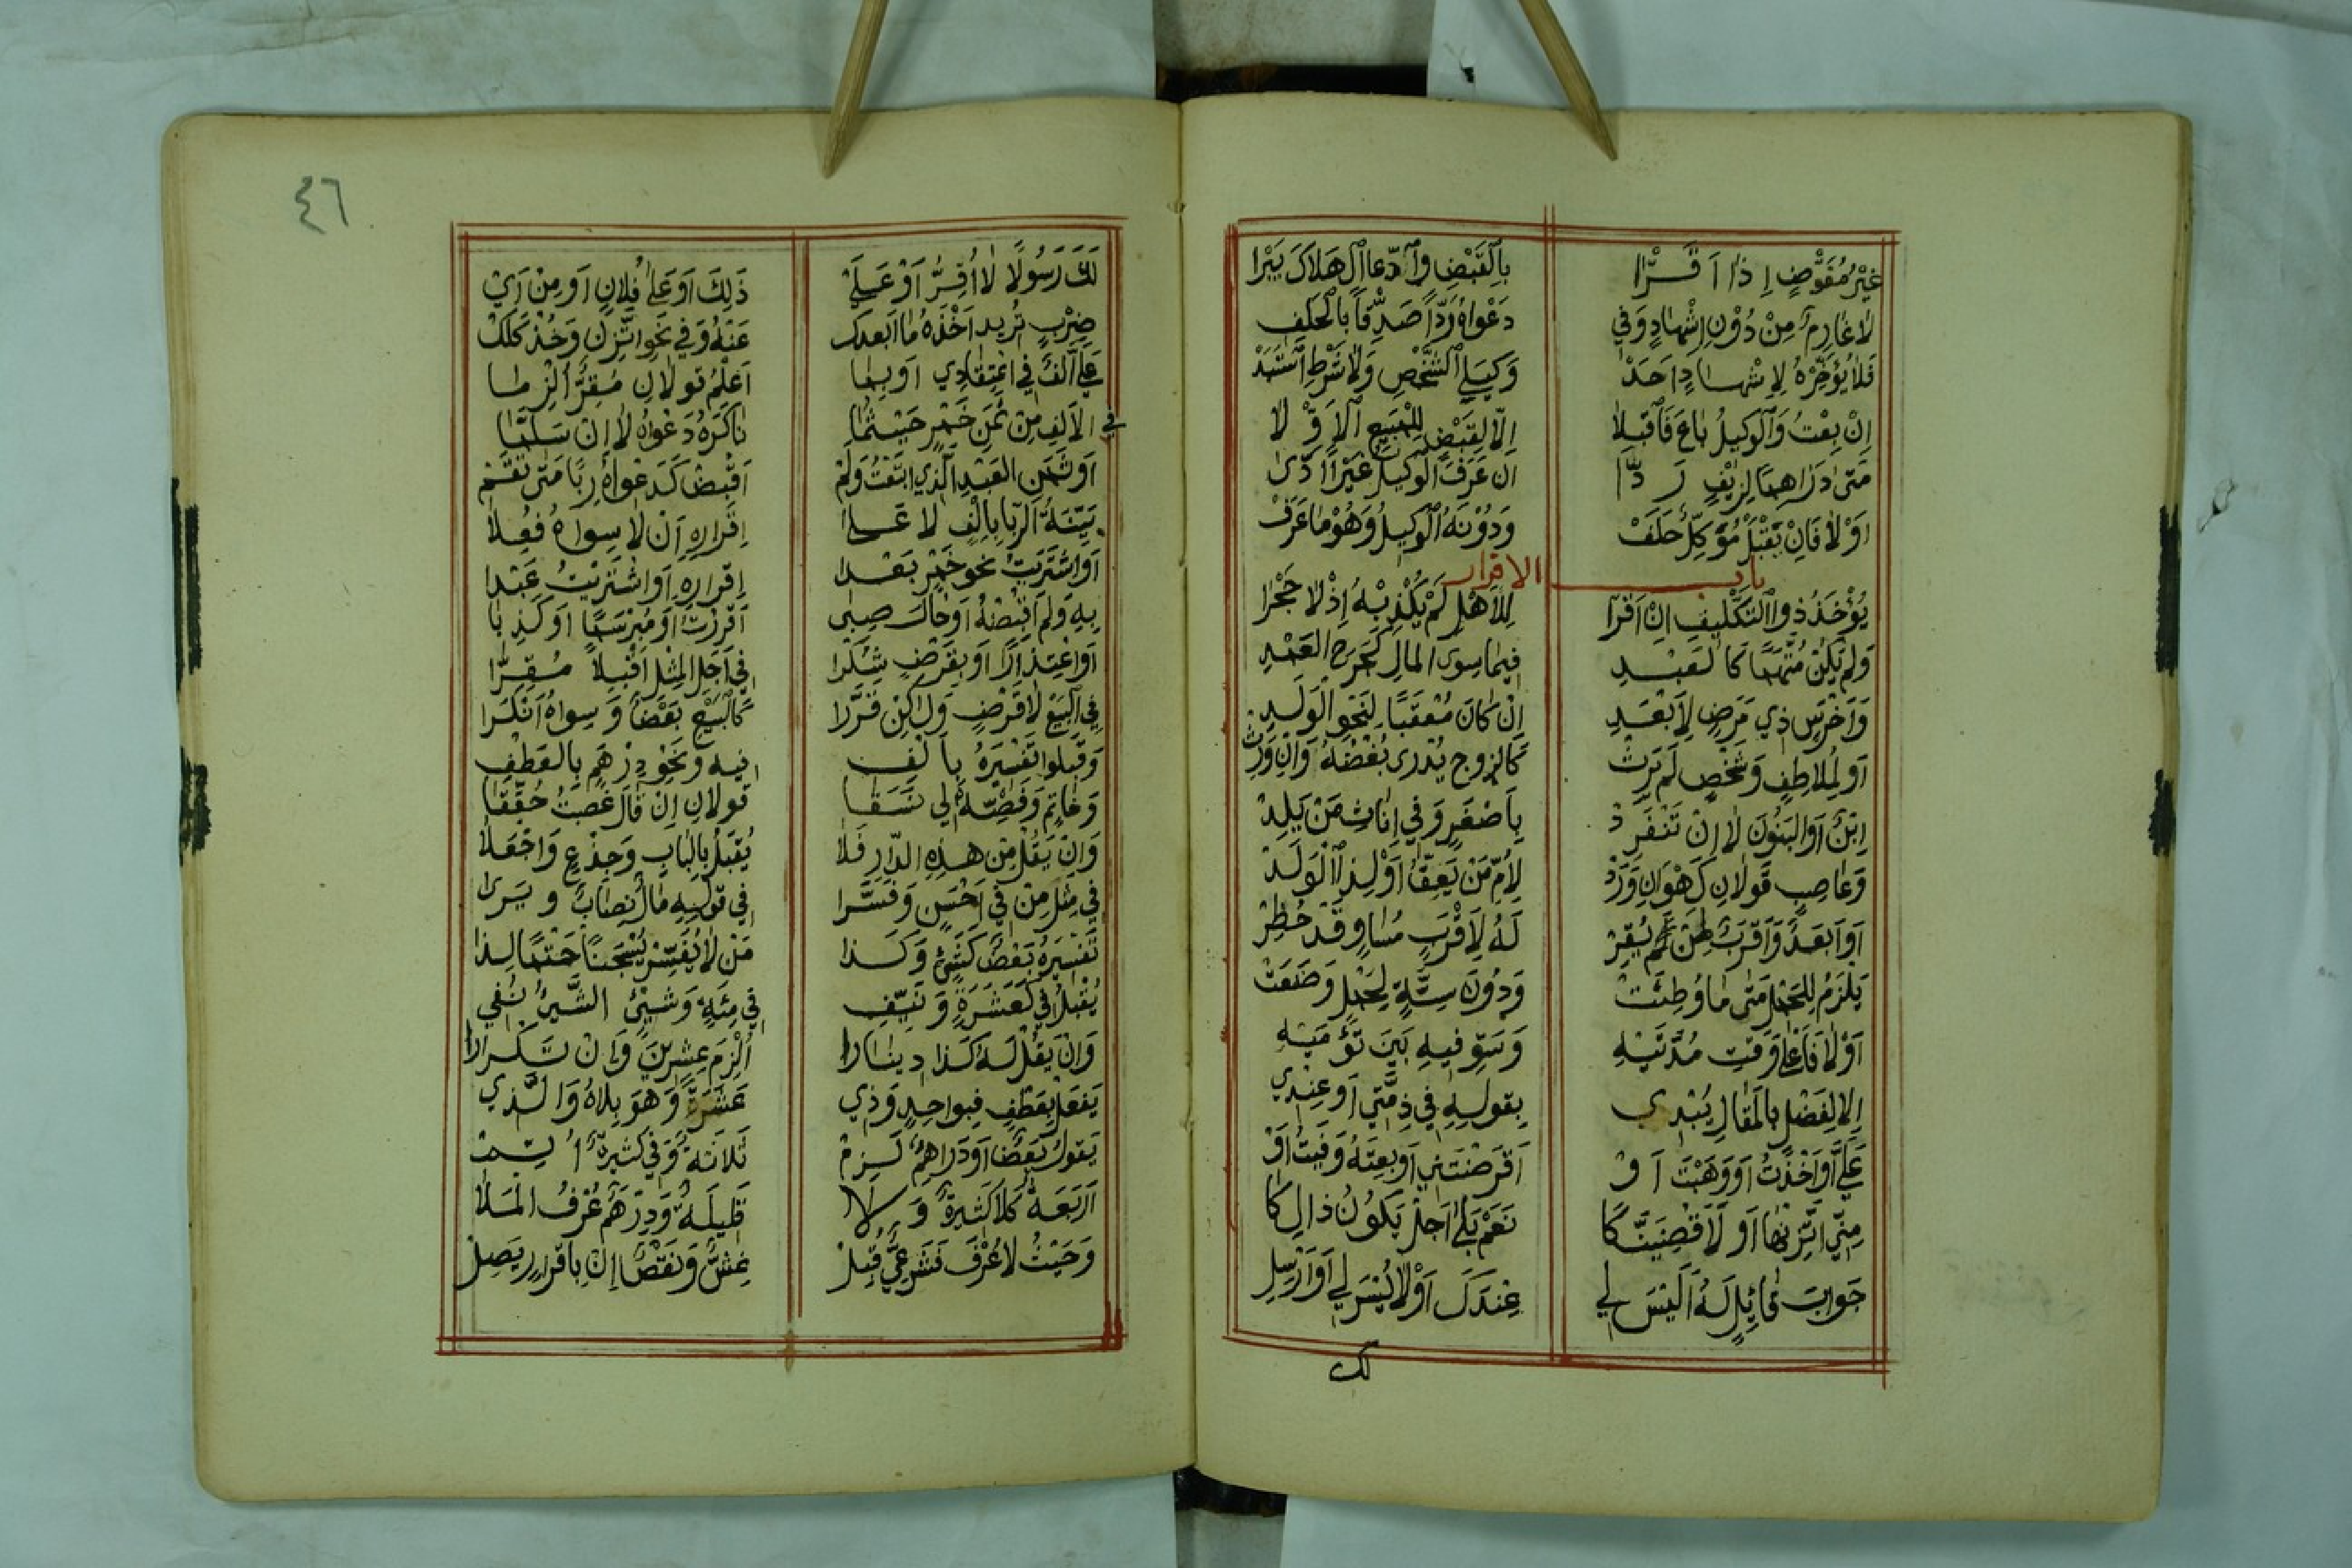 غَيْرُ مُفَوَّضٍ إِذَا اَقَرَّا بِالْقَبْضِ وَادَّعَا الْهَلَاكَ يَبْرَا
لَا غَارِمٌ مِنْ دُوْنِ اِشْهَادٍ وَفِي دَعْوَاهُ رَدًّا صَدِّقًا بِالْحَلِفِ
فَلَا يُؤَخِّرْهُ لِاِشْهَادٍ اَحَدْ وَكِيلِ الشَّخْصِ وَلَا شَرْطِ اسْتَبَدْ
اِنْ بِعْتُ وَالْوَكِيلُ بَاعَ فَاقْبَلَا اِلَّا لِقَبْضٍ لِلْمَبِيعِ الْاَوَّلَا
مَتَى دَرَاهِمًا لِزَيْفٍ رَدَّا اِنْ عَرَفَ الْوَكِيلُ غَيْرًا اَدَّى
اَوْ لَا فَاِنْ يَقْبَلْ مُؤَكِّلٌ حَلَفْ وَدُوْنَهُ الْوَكِيلُ وَهُوْ مَا عَرَفْ
باب الاقرار
يُؤْخَذُ ذُوا التَّكْلِيفِ اِنْ اَقَرَّا لِلْاَهْلِ لَمْ يُكْذِبْهُ اِذْ لَا حَجْرَا
وَلَمْ يَكُنْ مُتَّهَمًا كَالْعَبْدِ فِيمَا سِوَى الْمَالِ كَجَرْحِ الْعَمْدِ
وَاَخْرَسٍ ذِي مَرَضٍ لِاَبْعَدِ اِنْ كَانَ مُعْقِبًا لِنَحْوِ الْوَلَدِ
اَوْ لِمُلَاطِفٍ وَشَخْصٍ لَمْ يَرِثْ كَالزَّوْجِ يُدْرَى بُغْضُهُ وَاِنْ وَرِثْ
اِبْنٌ اَوِ الْبَنُونَ لَا اِنْ تَنْفَرِدْ بِاَصْغَرٍ وَفِي اِنَاثٍ مَنْ يَلِدْ
وَعَاصِبٍ قَوْلَانِ كَهْوَ اِنْ وَرَدْ لِاُمِّ مَنْ يَعِقُّ اَوْ لِذَا الْوَلَدْ
اَوْ اَبْعَدٌ وَاَقْرَبُ مِمَّنْ لَمْ يُقِرْ لَهُ لِاَقْرَبٍ مُسَاوٍ قَدْ حُظِرْ
يَلْزَمُ لِلْحَمْلِ مَتَى مَا وُطِئَتْ وَدُونَ سِتَّةٍ لِحَمْلٍ وَضَعَتْ
اَوْ لَا فَاَعْلَى وَقْتِ مُدَّتَيْهِ وَسَوِّ فِيهِ بَيْنَ تَوْءَمَيْهِ
اِلَّا لِفَضْلٍ بِالْمَقَالِ يَبْتَدِي بِقَوْلِهِ فِي ذِمَّتِي اَوْ عِنْدِي
عَلَيَّ اَوْ اَخَذْتُ اَوْ وَهَبْتَ اَوْ اَقْرَضْتَنِي اَوْ بِعْتَهُ وَفَيْتُ اَوْ
مِنِّي اتَّزِنْهَا اَوْ لَاَقْضِيَنَّكَا نَعَمْ بَلَى اَجَلْ يَكُوْنُ ذَالِكَا
جَوَابَ قَائِلٍ لَهُ اَلَيْسَ لِي عِنْدَكَ اَوْ لَا يُسْرَ لِي اَوْ اَرْسِلِ
لك
٤٦
لَكَ رَسُولًا لَا اُقِرُّ اَوْ عَلَى ذَلِكَ اَوْ عَلَى فُلَانٍ اَوْ مِنْ اَيّ
ضَرْبٍ تُرِيدُ اَخْذَهُ مَا اَبْعَدَكْ عَنْهُ وَفِي نَحْوِ اتَّزِنْ وَخُذْ كَلَكْ
عَلَيَّ اَلْفٌ فِي اعْتِقَادِي اَوْ بِمَا اَعْلَمُ قَوْلَانِ مُقِرٌّ اُلْزِمَا
فِي الْاَلْفِ مِنْ ثَمَنِ خَمْرٍ حَيْثُمَا نَاكَرَهُ دَعْوَاهُ لَا اِنْ سَلَّمَا
اَوْ ثَمَنِ الْعَبْدِ الَّذِي ابْتَعْتُ وَلَمْ اَقْبِضْ كَدَعْوَاهُ رِبًا مَتَى تَقُمْ
بَيِّنَةُ الرِّبَا بِاَلْفٍ لَا عَلَى اِقْرَارِهِ اَنْ لَا سِوَاهُ فُعِلَا
اَوِ اشْتَرَيْتُ نَحْوَ خَمْرٍ بَعْدَا اِقْرَارِهِ اَوِ اشْتَرَيْتُ عَبْدَا
بِهِ وَلَمْ اَقْبِضْهُ اَوْ حَالَ صِبَى اَقْرَرْتُ اَوْ مُبَرْسَمًا اَوْ كَذِبَا
اَوْ اعْتِذَارًا اَوْ بِقَرْضٍ شُكْرَا فِي اَجَلِ الْمِثْلِ اقْبَلًا مُقِرًّا
فِي الْبَيْعِ لَا قَرْضٍ وَلَكِنْ قَرَّرَا كَالْبَيْعِ بَعْضًا وَسِوَاهُ اَنْكَرَا
وَقَبِلُوا تَفْسِيرَهُ بِاَلْفِ فِيهِ وَنَحْوِ دِرْهَمٍ بِالْعَطْفِ
وَخَاتَمٌ وَفَصُّهُ لِي نَسَقَا قَوْلَانِ اِنْ قَالَ غَصَبْتُ حُقِّقَا
وَاِنْ يَقُلْ مِنْ هَذِهِ الدَّارِ فَلَا يُقْبَلُ بِالْبَابِ وَجِذْعٍ وَاجْعَلَا
فِي مِثْلِ مِنْ فِي اَحْسَنٍ وَفَسَّرَا فِي قَوْلِهِ مَالٌ نِصَابٌ وَيُرَى
تَفْسِيرُهُ بَعْضٌ كَشَيْءٍ وَكَذَا مَنْ لَا يُفَسِّرْ يُسْجَنَنْ حَتْمًا لِذَا
يُقْبَلُ فِي كَعَشَرَةٍ وَنَيِّفِ فِي مِئَةٍ وَشَيْئٍ الشَّيْءُ نُفِي
وَاِنْ يَقُلْ لَهُ كَذَا دِينَارَا اُلْزِمَ عِشْرِينَ وَاِنْ تَكْرَارَا
يَفْعَلْ بِعَطْفٍ فَبِوَاحِدٍ وَذِي عَشَرَةٌ وَهْوَ بِلَاهُ وَالَّذِي
يَقُولُ بَعْضٌ اَوْ دَرَاهِمُ لَزِمْ ثَلَاثَةٌ وَفِي كَثِيرَةٍ اُتِمّ
اَرْبَعَةٌ كَلَا كَثِيرَةٌ وَلَا قَلِيلَةٌ وَدِرْهَمٌ عُرْفُ الْمَلَا
وَحَيْثُ لَا عُرْفَ فَشَرْعِيٌّ قُبِلْ غِشٌّ وَنَقْصٌ اِنْ بِاِقْرَارٍ يَصِلْ